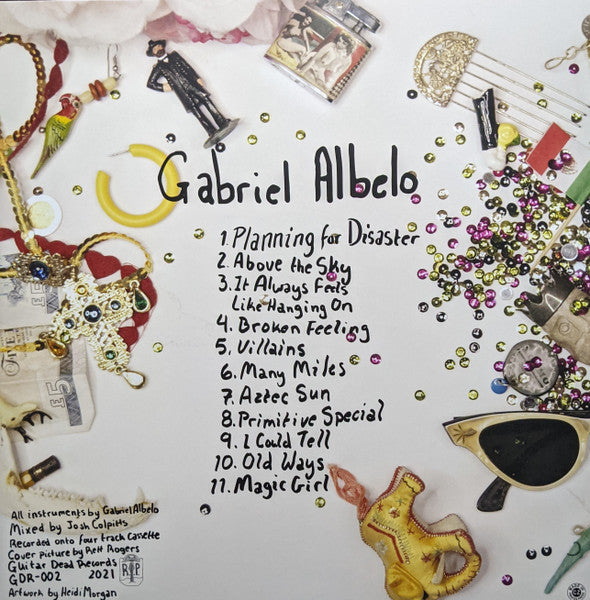 Gabriel Albelo
1. Planning for Disaster
2. Above the Sky
3. It Always Feels
Like Hanging On
4. Broken Feeling
5. Villains
6. Many Miles
7. Aztec Sun
8. Primitive Special
9. I Could Tell
10. Old Ways
11. Magic Girl
£5
All instruments by Gabriel Albelo
Mixed by Josh Colpitts
Recorded onto four track Cassette
Cover Picture by Rett Rogers
Guitar Dead Records
GDR-002 2021
Artwork by Heidi Morgan